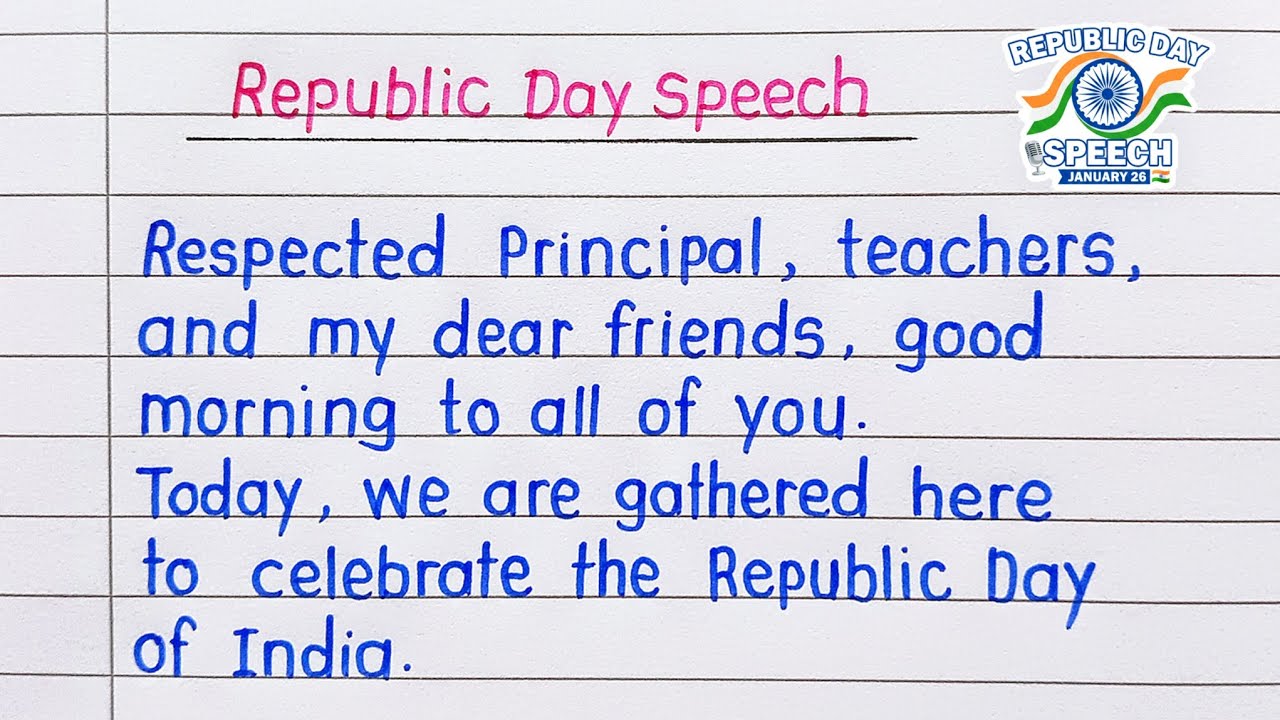 Republic Day Speech
REPUBLIC DAY
SPEECH
JANUARY 26
Respected Principal, teachers,
and my dear friends, good
morning to all of you.
Today, we are gathered here
to celebrate the Republic Day
of India.